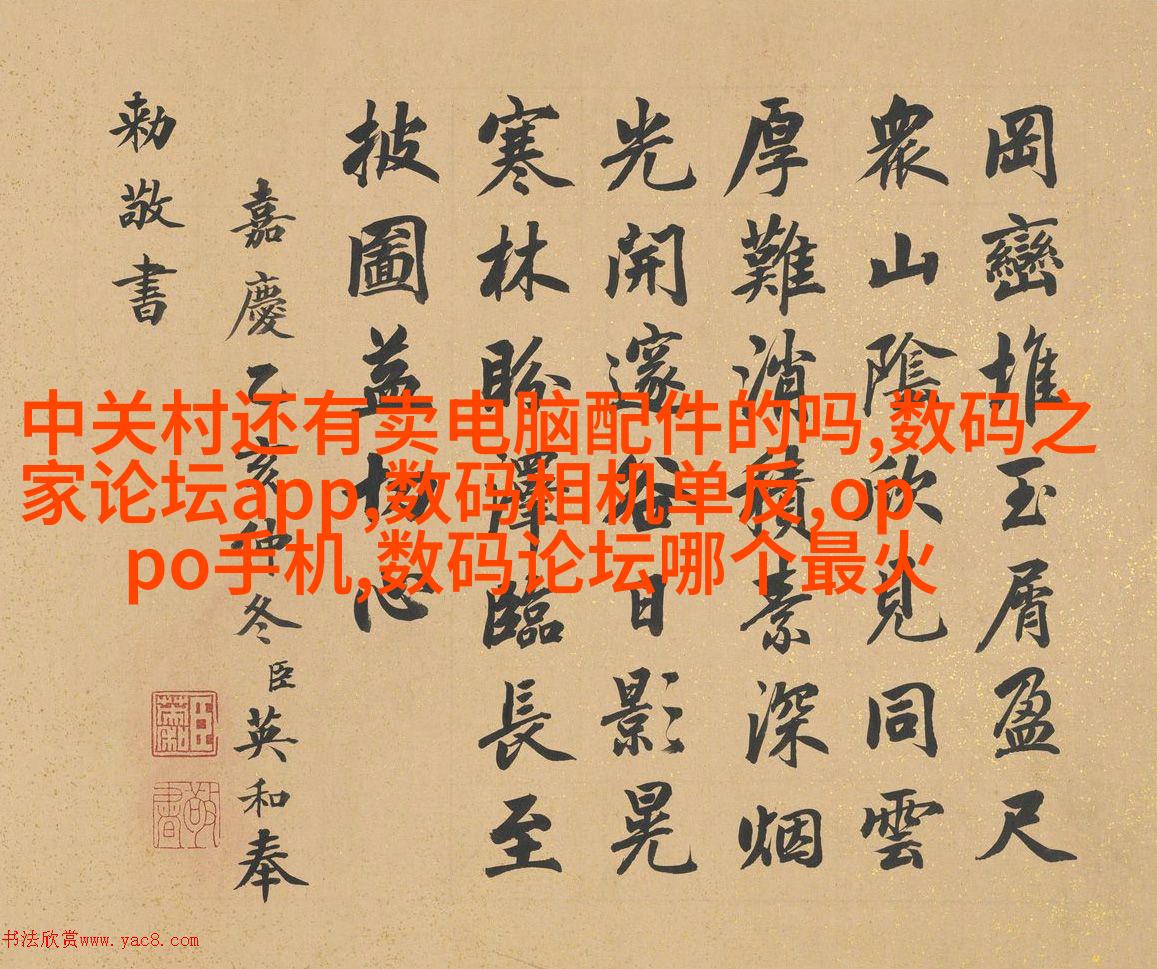 岡巒堆玉屑盈尺
衆山陰欣見同雲
厚難消積素深烟
光開邃谷日影晃
寒林盼澤臨長至
披圖益惕心
嘉慶乙亥仲冬臣英和奉
勅敬書
中关村还有卖电脑配件的吗,数码之
家论坛app,数码相机单反,op
po手机,数码论坛哪个最火
书法欣赏www.yac8.com